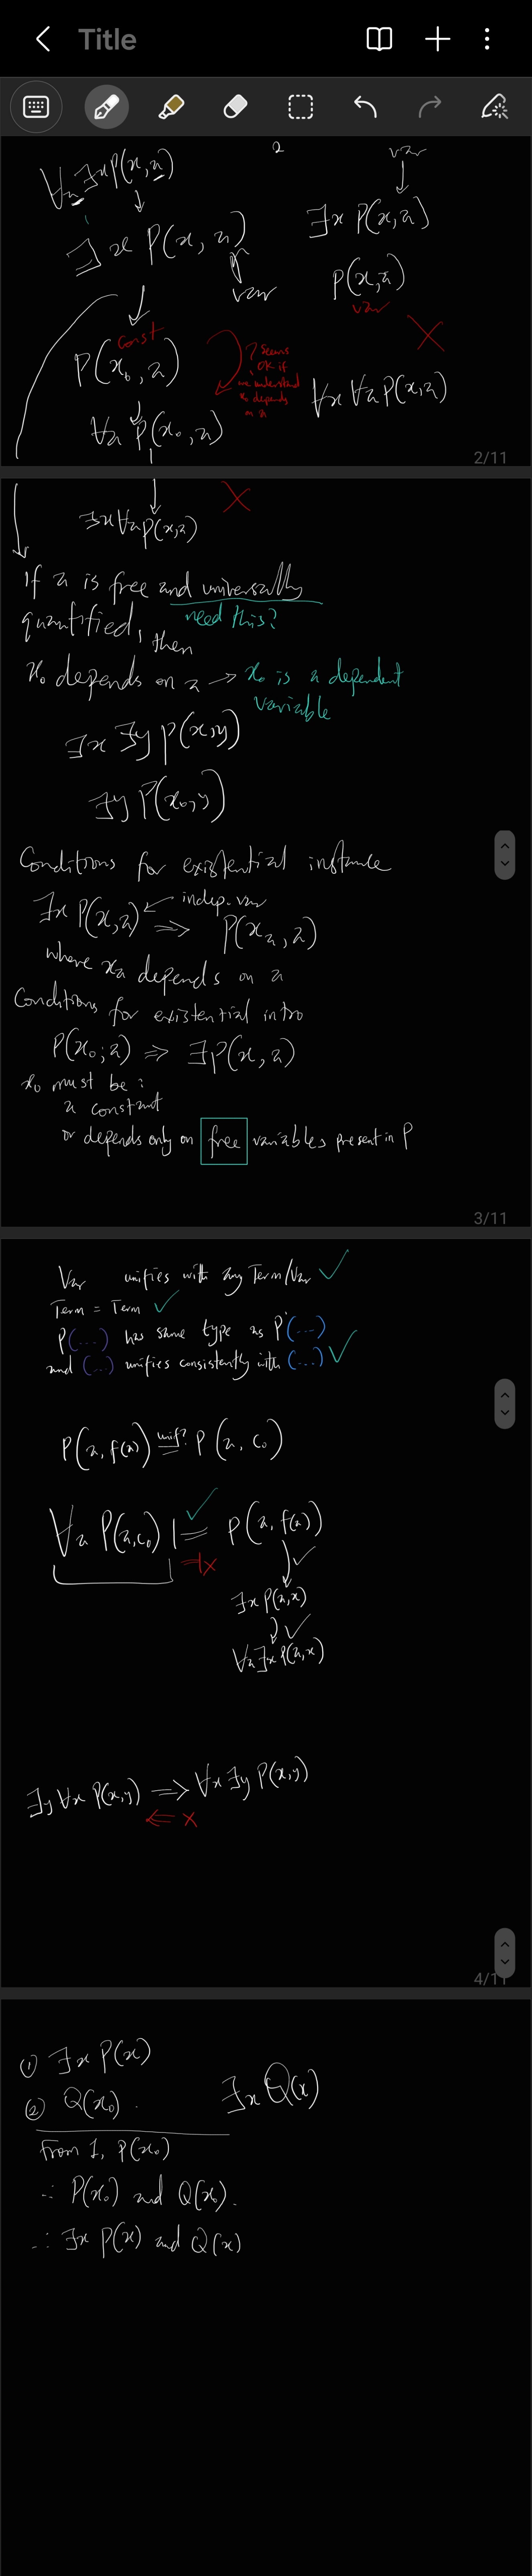 Title
2
∀a ∃x P(x, a)
↓
∃x P(x, a)
var
↓
const
P(x₀, a)
? Seems
ok if
we understand
x₀ depends
on a
↓
∀a P(x₀, a)
var
↓
∃x P(x, a)
P(x, a)
var
X
∀x ∀a P(x, a)
2/11
↓
∃x ∀a P(x, a)
X
If a is free and universally
need this?
quantified, then
x₀ depends on a → x₀ is a dependent
variable
∃x ∃y P(x, y)
∃y P(x₀, y)
Conditions for existential instance
∃x P(x, a) ← indep. var
⇒ P(xₐ, a)
where xₐ depends on a
Conditions for existential intro
P(x₀, a) ⇒ ∃P(x, a)
x₀ must be:
a constant
or depends only on free variables present in P
3/11
Var unifies with any Term/Var ✓
Term = Term ✓
P(...) has same type as P'(...)
and (...) unifies consistently with (...) ✓
P(a, f(a)) unif? = P(a, c₀)
∀a P(a, c₀) ⊨ P(a, f(a))
✓
=| x
↓ ✓
∃x P(a, x)
↓ ✓
∀a ∃x P(a, x)
∃y ∀x P(x, y) ⇒ ∀x ∃y P(x, y)
⇐ x
4/11
① ∃x P(x)
② Q(x₀).
∃x Q(x)
From 1, P(x₀)
∴ P(x₀) and Q(x₀).
∴ ∃x P(x) and Q(x)